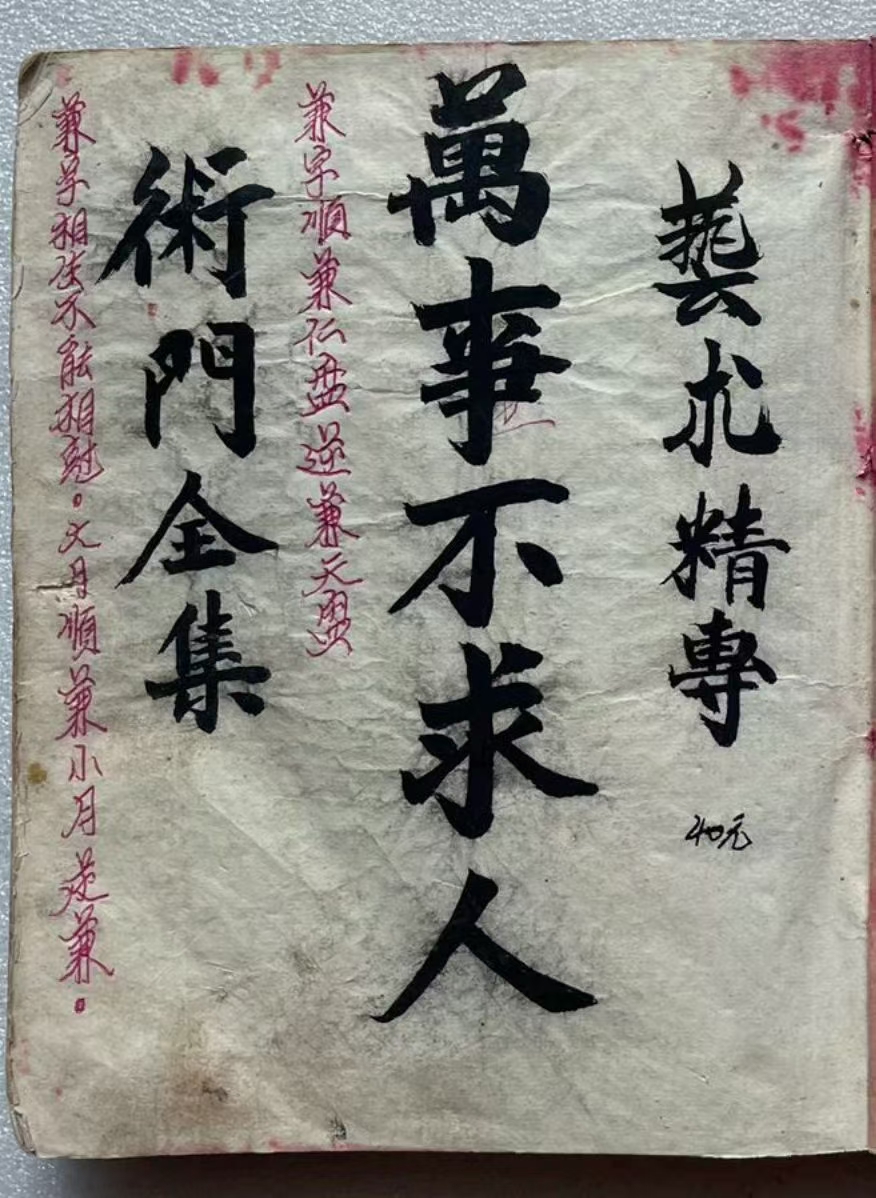 藝朮精專
40元
萬事不求人
兼字順兼仁盘逆兼天盤
術門全集
兼字相生不能相剋。大月順兼小月逆兼。